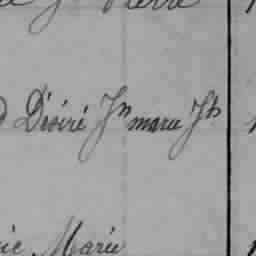 Pierre
Désiré Jn marie Jh
Marie